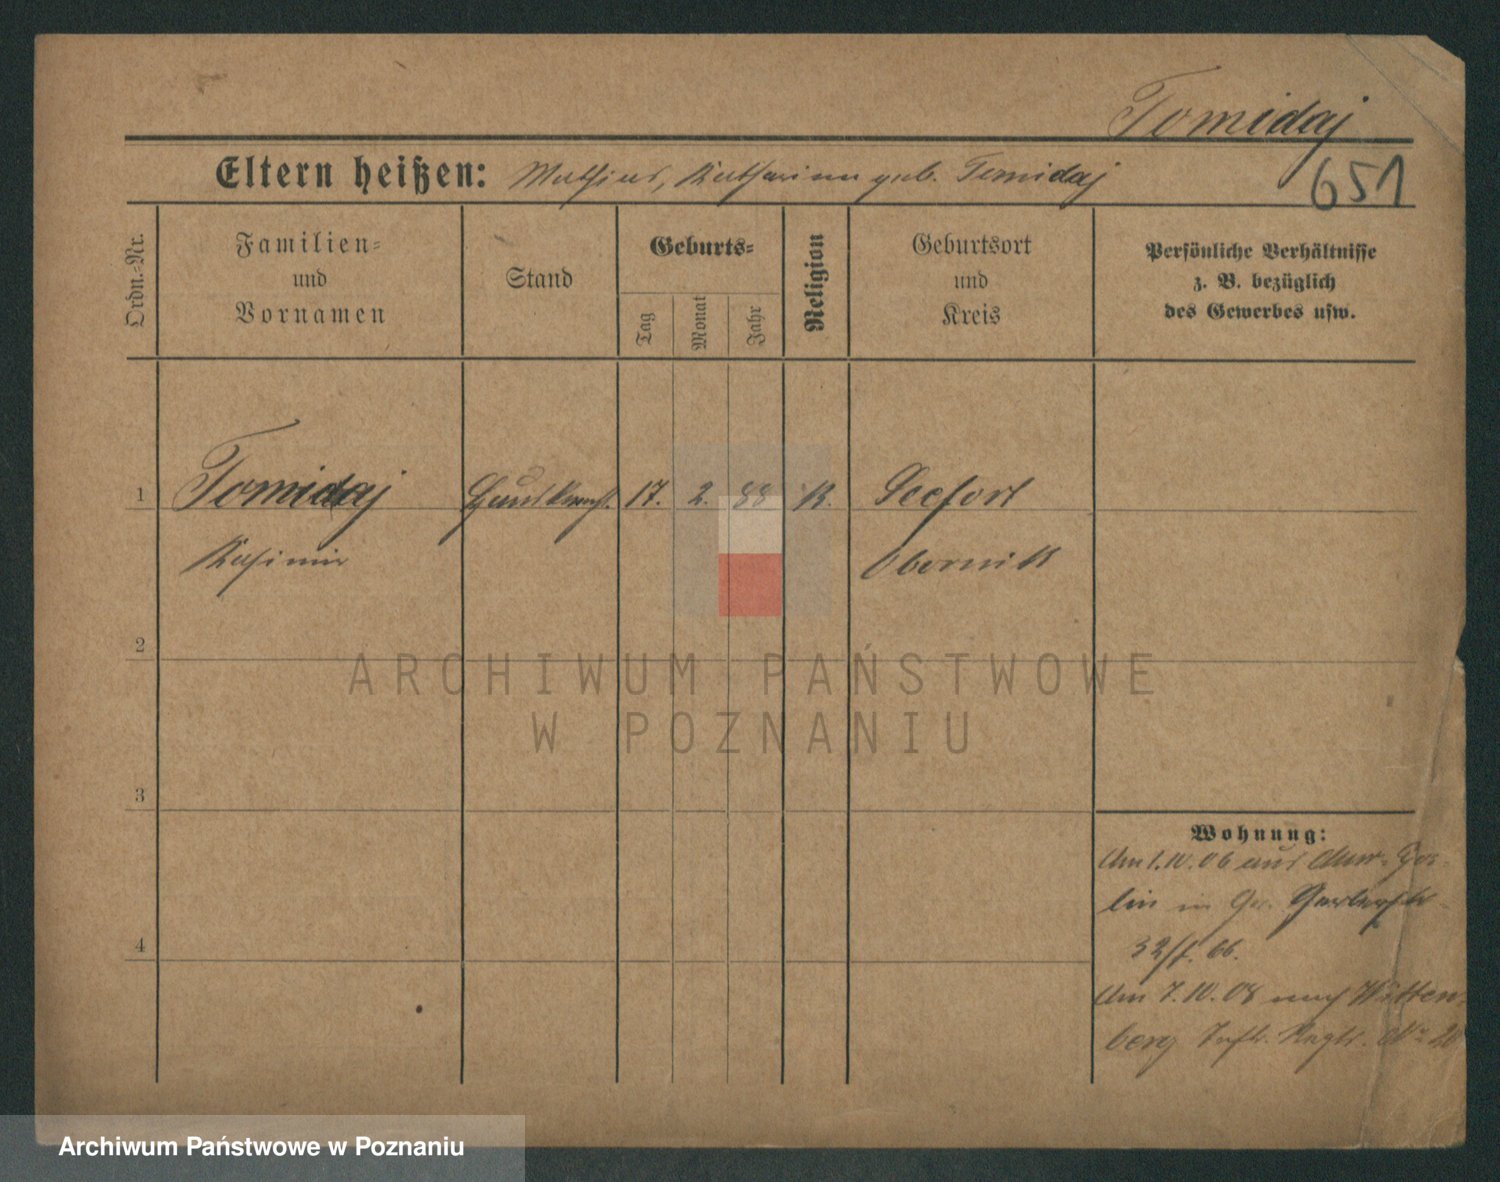 Tomidaj
651
Eltern heißen: Mathias, Katharina geb. Tomidaj
Ordn.-Nr.
Familien- und Vornamen
Stand
Geburts-
Tag
Monat
Jahr
Religion
Geburtsort und Kreis
Persönliche Verhältnisse
z. B. bezüglich
des Gewerbes usw.
1 Tomidaj Hausknecht. 17. 2. 88 K. Seefort
Kasimir Obornik
2
3
4
Wohnung:
Am 1.10.06 aus
lin in
32/
Am 7.10.08 nach Witten-
berg Inftr. Regtr. No 20
ARCHIWUM PAŃSTWOWE
W POZNANIU
Archiwum Państwowe w Poznaniu